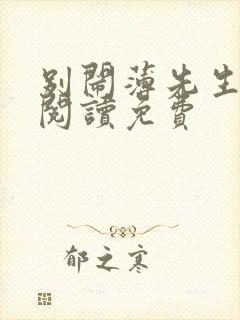 別鬧薄先生
閱讀免費
郁之寒